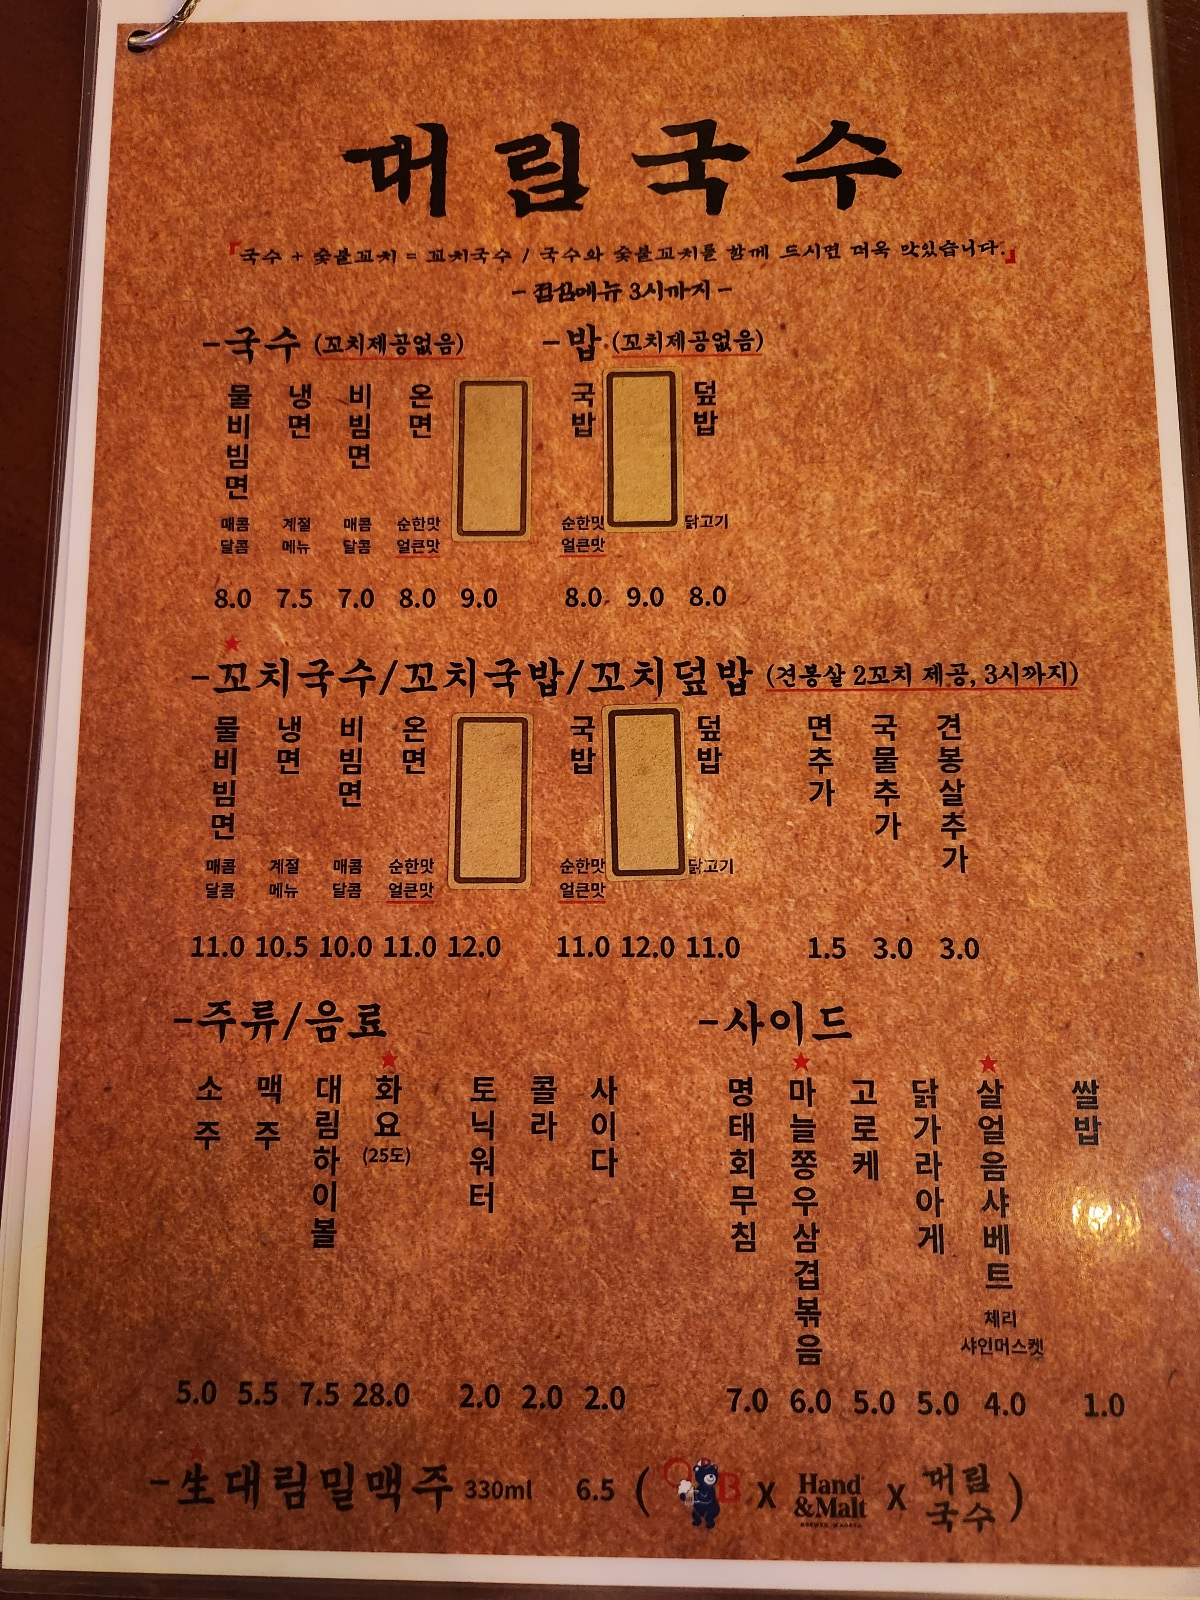 대림국수
『국수 + 숯불꼬치 = 꼬치국수 / 국수와 숯불꼬치를 함께 드시면 더욱 맛있습니다.』
- 점심메뉴 3시까지 -
-국수 (꼬치제공없음)
물비빔면 냉면 비빔면 온면
매콤달콤 계절메뉴 매콤달콤 순한맛 얼큰맛
8.0 7.5 7.0 8.0 9.0
-밥 (꼬치제공없음)
국밥 덮밥
순한맛 얼큰맛 닭고기
8.0 9.0 8.0
-꼬치국수/꼬치국밥/꼬치덮밥 (견봉살 2꼬치 제공, 3시까지)
물비빔면 냉면 비빔면 온면 국밥 덮밥 면추가 국물추가 견봉살추가
매콤달콤 계절메뉴 매콤달콤 순한맛 얼큰맛 순한맛 얼큰맛 닭고기
11.0 10.5 10.0 11.0 12.0 11.0 12.0 11.0 1.5 3.0 3.0
-주류/음료
소주 맥주 대림하이볼 화요 (25도) 토닉워터 콜라 사이다
5.0 5.5 7.5 28.0 2.0 2.0 2.0
-사이드
명태회무침 마늘쫑우삼겹볶음 고로케 닭가라아게 살얼음샤베트 쌀밥
체리
샤인머스켓
7.0 6.0 5.0 5.0 4.0 1.0
-生대림밀맥주 330ml 6.5 ( OB X Hand &Malt X 대림국수 )